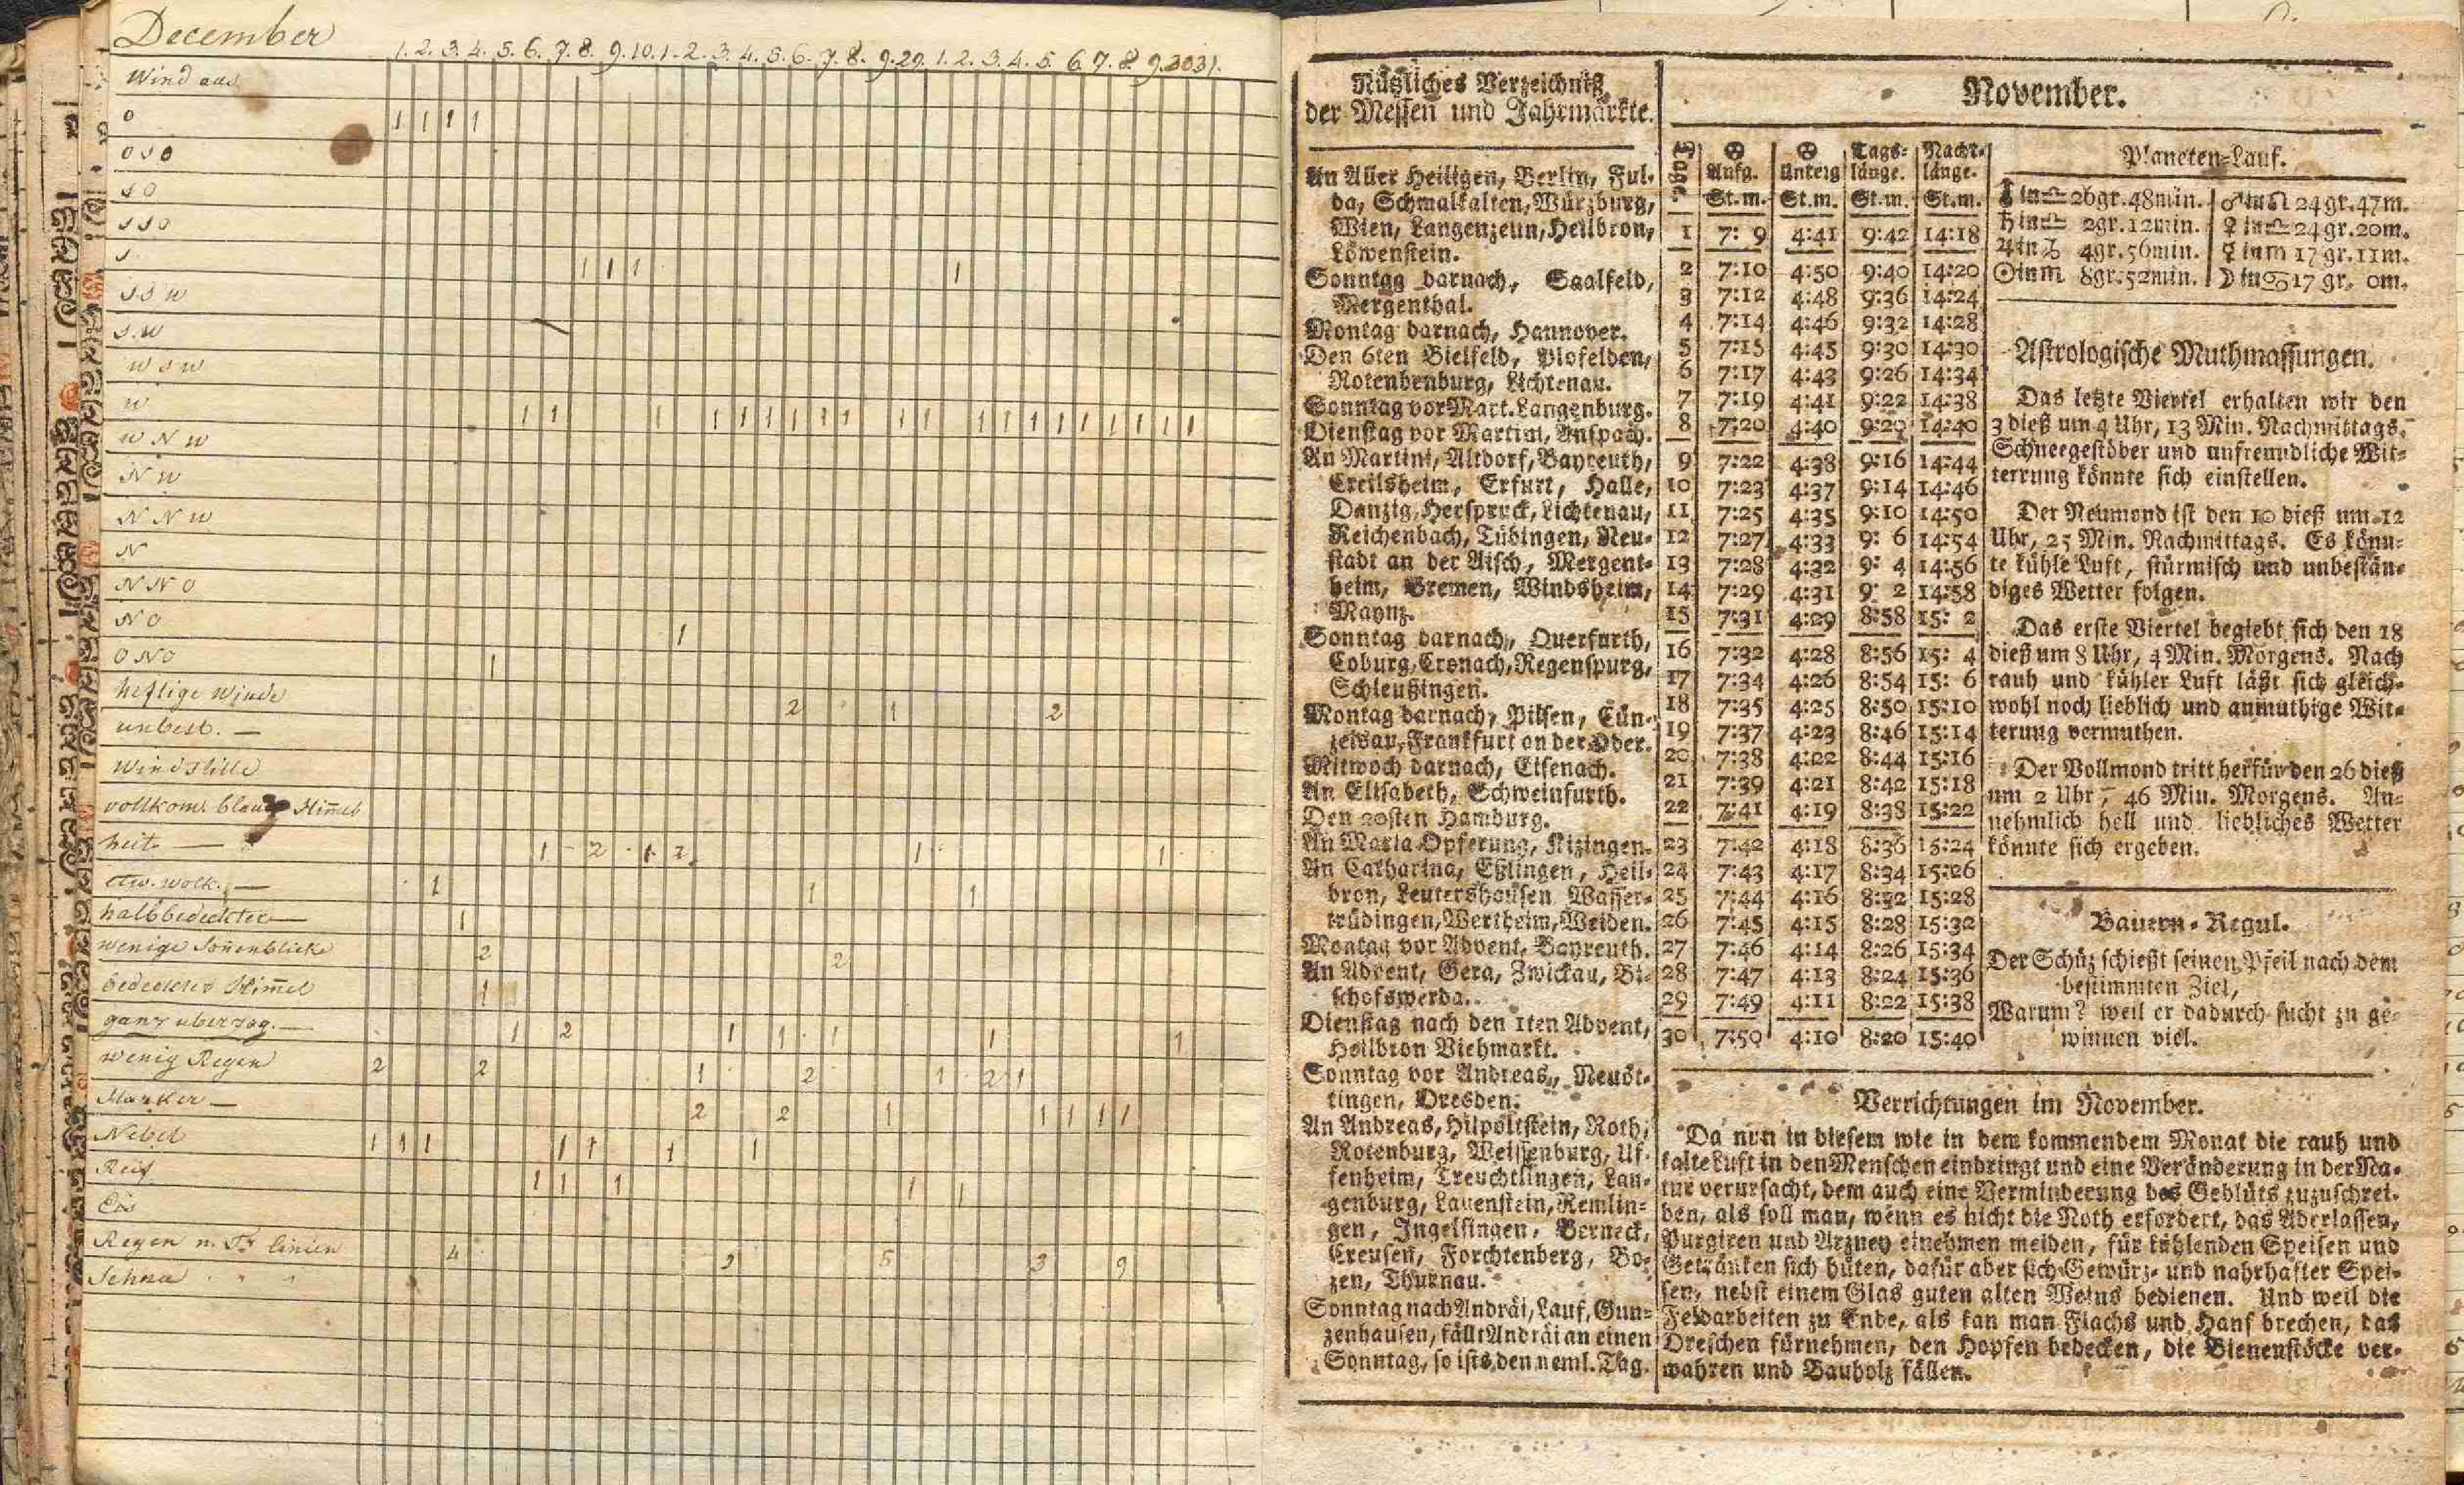 December
1. 2. 3. 4. 5. 6. 7. 8. 9. 10. 1. 2. 3. 4. 5. 6. 7. 8. 9. 20. 1. 2. 3. 4. 5. 6. 7. 8. 9. 30 31.
Wind aus
O 1 1 1 1
O S O
S O
S S O
S 1 1 1 1
S S W
S. W
W S W
W 1 1 1 1 1 1 1 1 1 1 1 1 1 1 1 1 1 1 1 1
W N W
N W
N N W
N
N N O
N O 1
O N O 1
heftige Winde 2 1 2
unbest. —
Windstille
vollkom. blauer Him̅el
heit. — 1 2 1 2 1 1
etw. wolk. — 1 1 1
halbbedeckter — 1
wenige Son̅enblicke 2 2
bedeckter Him̅el 1
ganz uberzog. — 1 2 1 1 1 1 1
wenig Regen 2 2 1 2 1 2 1
starker — 2 2 1 1 1 1 1
Nebel 1 1 1 1 1 1 1
Reif 1 1 1 1 1
Eis
Regen n. linien 4 9 5 3 9
Schnee " "
Nützliches Verzeichniß
der Messen und Jahrmärkte.
An Aller Heiligen, Berlin, Ful-
da, Schmalkalten, Würzburg,
Wien, Langenzenn, Heilbron,
Löwenstein.
Sonntag darnach, Saalfeld,
Mergenthal.
Montag darnach, Hannover.
Den 6ten Bielfeld, Plofelden,
Rotenbenburg, Lichtenau.
Sonntag vor Mart. Langenburg.
Dienstag vor Martini, Anspach.
An Martini, Altdorf, Bayreuth,
Creilsheim, Erfurt, Halle,
Danzig, Herspruck, Lichtenau,
Reichenbach, Tübingen, Neu-
stadt an der Aisch, Mergent-
heim, Bremen, Windsheim,
Maynz.
Sonntag darnach, Querfurth,
Coburg, Cronach, Regenspurg,
Schleußingen.
Montag darnach, Pilsen, Cün-
zelsau, Frankfurt an der Oder.
Mitwoch darnach, Eisenach.
An Elisabeth, Schweinfurth.
Den 20sten Hamburg.
An Maria Opferung, Kizingen.
An Catharina, Eßlingen, Heil-
bron, Leutershausen, Wasser-
trüdingen, Wertheim, Weiden.
Montag vor Advent, Bayreuth.
An Advent, Gera, Zwickau, Bi-
schofswerda.
Dienstag nach den 1ten Advent,
Heilbron Viehmarkt.
Sonntag vor Andreas, Neuöt-
tingen, Dresden.
An Andreas, Hilpoltstein, Roth,
Rotenburg, Weissenburg, Uf-
fenheim, Treuchtlingen, Lan-
genburg, Lauenstein, Remlin-
gen, Ingelfingen, Berneck,
Creusen, Forchtenberg, Bo-
zen, Thurnau.
Sonntag nach Andräi, Lauf, Gun-
zenhausen, fällt Andräi an einen
Sonntag, so ists den neml. Tag.
November.
Tage ☉ Aufg. ☉ Unterg Tags-länge. Nacht-länge.
St. m. St. m. St. m. St. m.
1 7: 9 4:41 9:42 14:18
2 7:10 4:50 9:40 14:20
3 7:12 4:48 9:36 14:24
4 7:14 4:46 9:32 14:28
5 7:15 4:45 9:30 14:30
6 7:17 4:43 9:26 14:34
7 7:19 4:41 9:22 14:38
8 7:20 4:40 9:20 14:40
9 7:22 4:38 9:16 14:44
10 7:23 4:37 9:14 14:46
11 7:25 4:35 9:10 14:50
12 7:27 4:33 9: 6 14:54
13 7:28 4:32 9: 4 14:56
14 7:29 4:31 9: 2 14:58
15 7:31 4:29 8:58 15: 2
16 7:32 4:28 8:56 15: 4
17 7:34 4:26 8:54 15: 6
18 7:35 4:25 8:50 15:10
19 7:37 4:23 8:46 15:14
20 7:38 4:22 8:44 15:16
21 7:39 4:21 8:42 15:18
22 7:41 4:19 8:38 15:22
23 7:42 4:18 8:36 15:24
24 7:43 4:17 8:34 15:26
25 7:44 4:16 8:32 15:28
26 7:45 4:15 8:28 15:32
27 7:46 4:14 8:26 15:34
28 7:47 4:13 8:24 15:36
29 7:49 4:11 8:22 15:38
30 7:50 4:10 8:20 15:40
Planeten-Lauf.
⛢ in ♎ 26gr. 48min. ♂ in ♌ 24gr. 47m.
♄ in ♎ 2gr. 12min. ♀ in ♎ 24gr. 20m.
♃ in ♑ 4gr. 56min. ☿ in ♏ 17gr. 11m.
☉ in ♏ 8gr. 52min. ☽ in ♋ 17 gr. 0m.
Astrologische Muthmassungen.
Das letzte Viertel erhalten wir den
3 dieß um 4 Uhr, 13 Min. Nachmittags.
Schneegestöber und unfreundliche Wit-
terrung könnte sich einstellen.
Der Neumond ist den 10 dieß um 12
Uhr, 25 Min. Nachmittags. Es könn-
te kühle Luft, stürmisch und unbestän-
diges Wetter folgen.
Das erste Viertel begiebt sich den 18
dieß um 8 Uhr, 4 Min. Morgens. Nach
rauh und kühler Luft läßt sich gleich-
wohl noch lieblich und anmuthige Wit-
terung vermuthen.
Der Vollmond tritt herfür den 26 dieß
um 2 Uhr, 46 Min. Morgens. An-
nehmlich hell und liebliches Wetter
könnte sich ergeben.
Bauern-Regul.
Der Schüz schießt seinen Pfeil nach dem
bestimmten Ziel,
Warum? weil er dadurch sucht zu ge-
winnen viel.
Verrichtungen im November.
Da nun in diesem wie in dem kommendem Monat die rauh und
kalte Luft in den Menschen einbringt und eine Veränderung in der Na-
tur verursacht, dem auch eine Verminderung des Geblüts zuzuschrei-
ben, als soll man, wenn es nicht die Noth erfordert, das Aderlassen,
Purgiren und Arzney einehmen meiden, für kühlenden Speisen und
Getränken sich hüten, dafür aber sich Gewürz- und nahrhafter Spei-
sen, nebst einem Glas guten alten Weins bedienen. Und weil die
Feldarbeiten zu Ende, als kan man Flachs und Hanf brechen, das
Dreschen fürnehmen, den Hopfen bedecken, die Bienenstöcke ver-
wahren und Bauholz fällen.